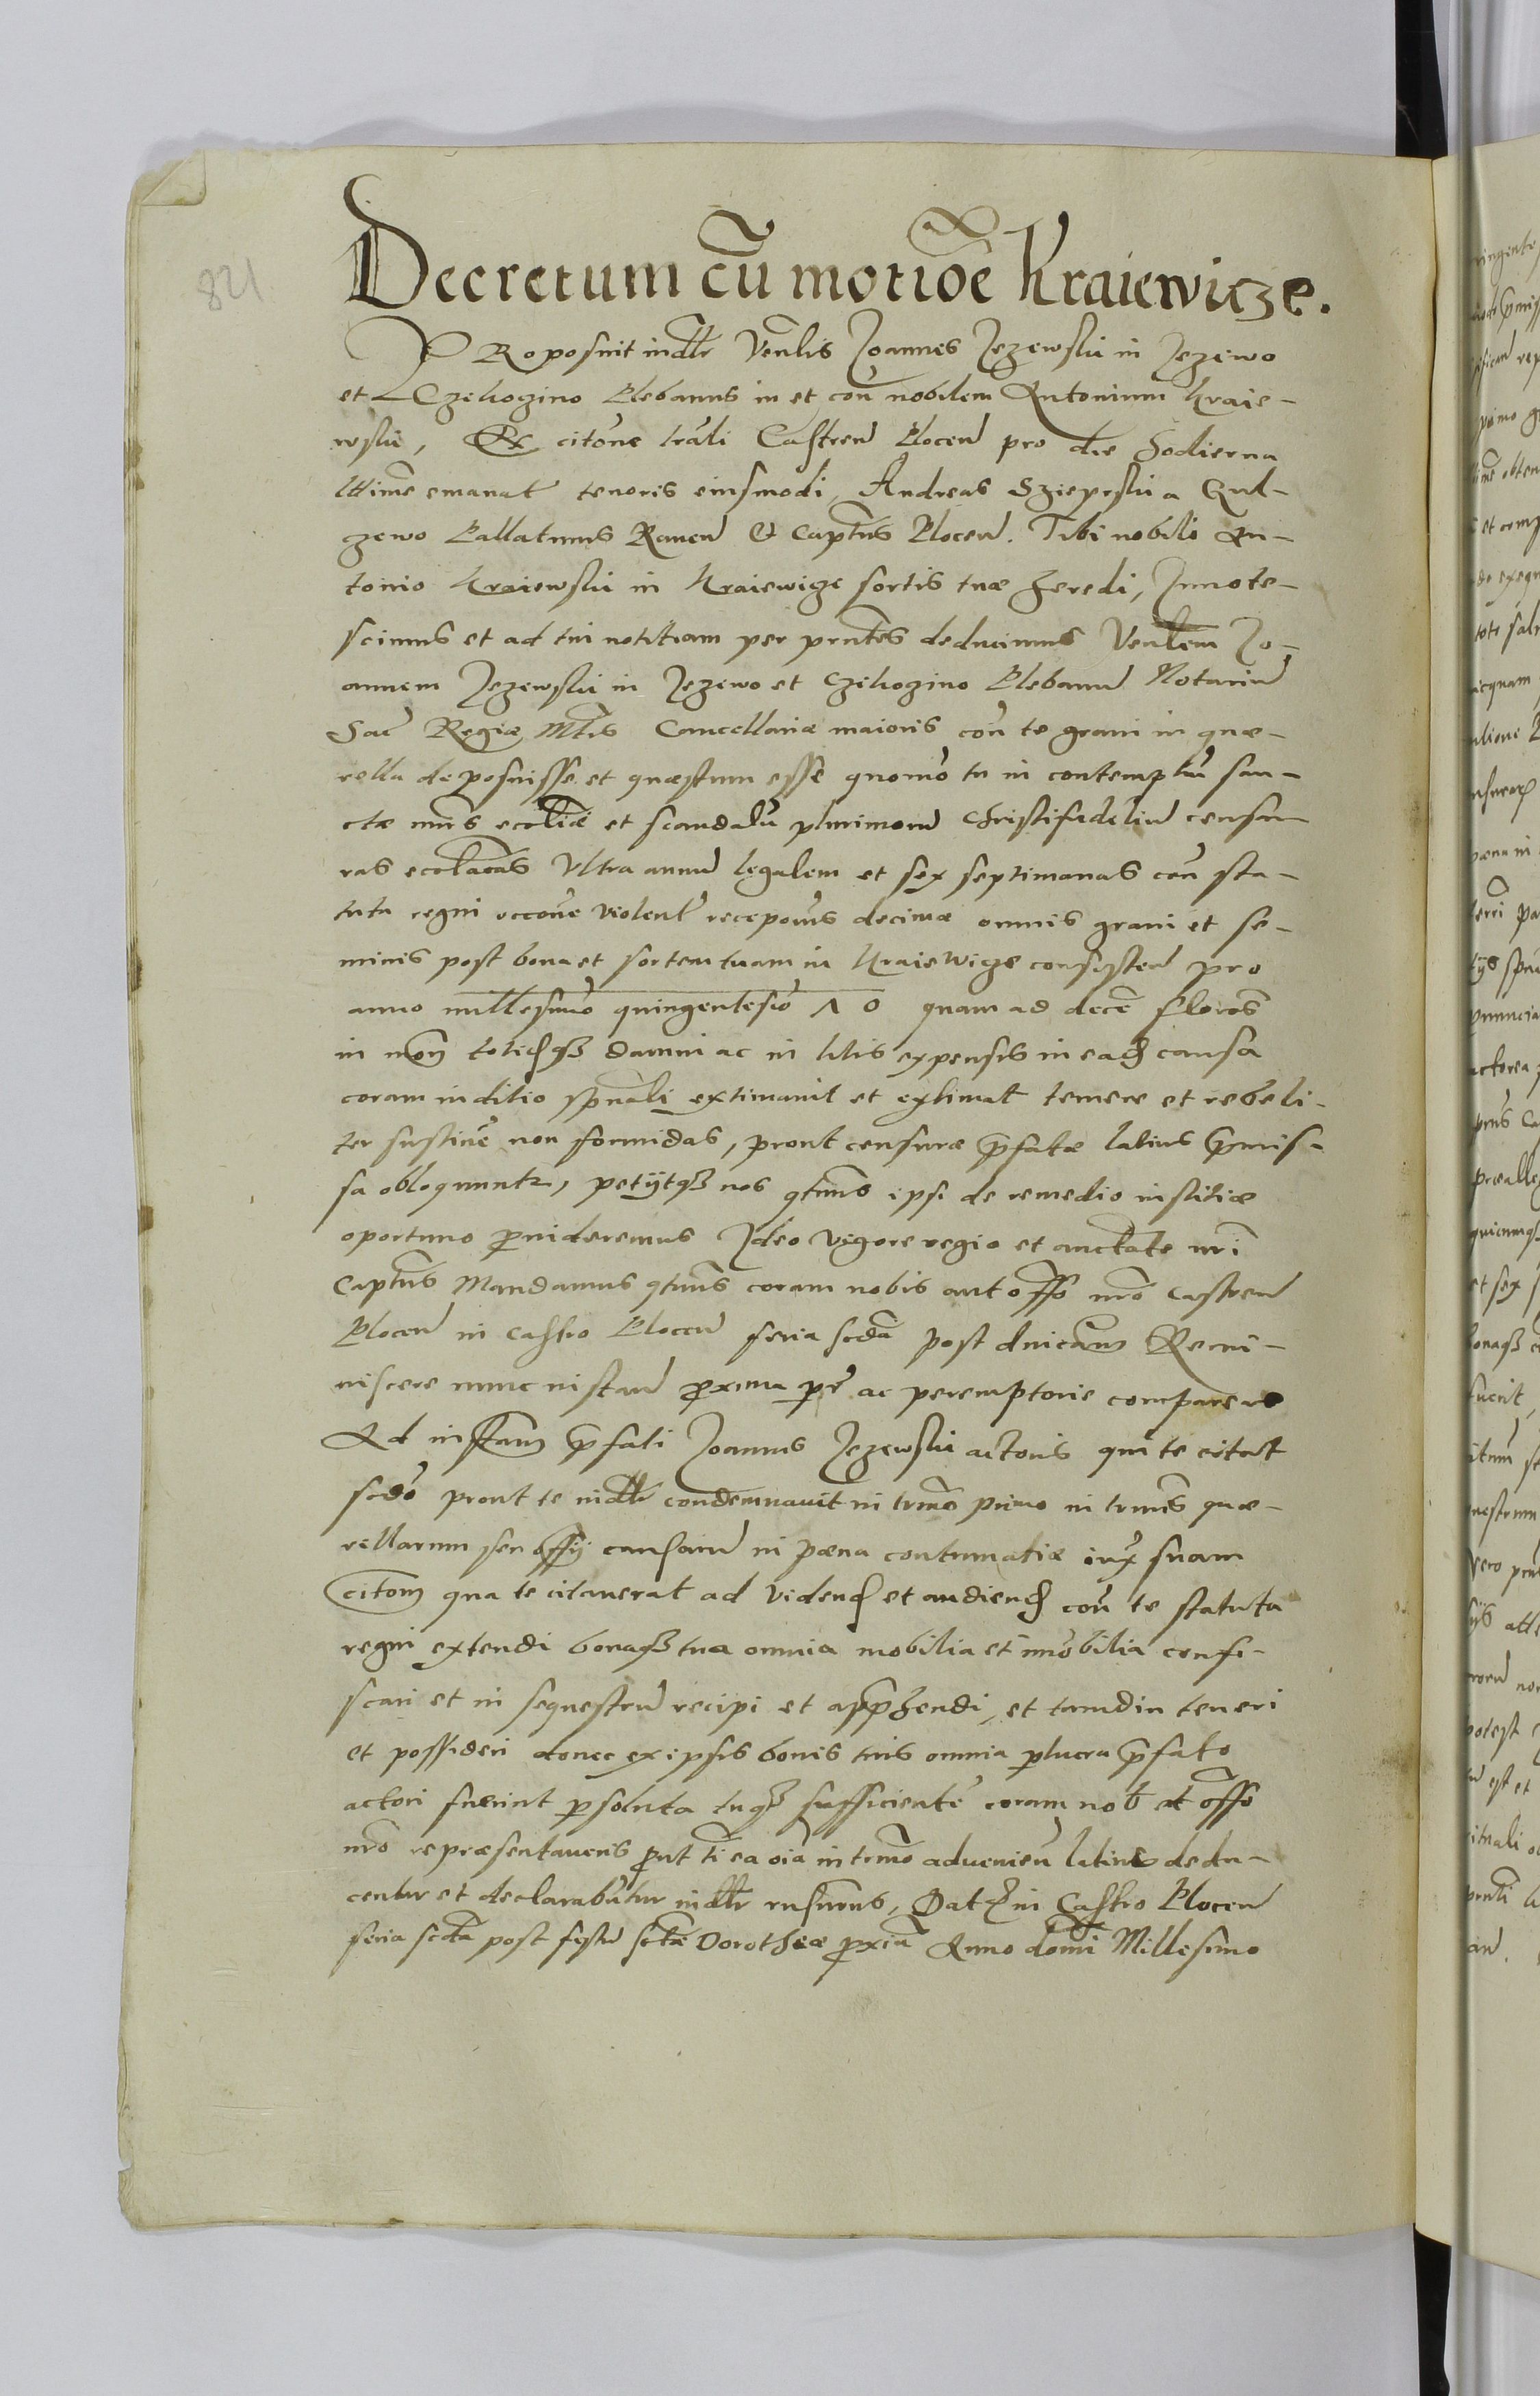 821
Decretum cũ motiõe Kraiewicze.
PRoposuit iudlr Venlis Joannes Jezewski in Jezewo
et Czekozino Plebanus in et con nobilem Antonium Kraie-
wski, Ex citõne lrali Castren Plocen pro die hodierna
lttime emanat tenoris eiusmodi, Andreas Szieprski a Gul-
czewo Pallatinus Raven & Captus Plocen. Tibi nobili An-
tonio Kraiewski in Kraiewicze sortis tuæ heredi, Innote-
scimus et ad tui notitiam per prntes deducimus Venlem Jo-
annem Jezewski in Jezewo et Czekozino Plebanu Notariu
Sac Regiæ Mtis Cancellariæ maioris con te graui in quæ-
rella deposuisse et quæstum esse quomo tu in contemptu san-
ctæ mris ecclie et scandalu plurimoru Christifideliu censu-
ras ecclacas Vltra annu legalem et sex septimanas con sta-
tuta regni occone violent recepois decimæ omnis grani et se-
minis post bona et sortem tuam in KraieWicze consisten pro
anno millesimo quingentesio 70 quam ad dece floros
in mon totidqz damni ac in litis expensis in ead causa
coram iuditio spuali extimauit et extimat temere et rebeli-
ter sustine non formidas, prout censuræ pfatæ latius pmis-
sa obloquuntr, petijtqz nos qtinus ipsi de remedio iustitiæ
oportuno puideremus Ideo vigore regio et auctate nri
Captus Mandamus qtinus coram nobis aut offo nro Castren
Plocen in Castro Plocen feria scda post dnicam Remi-
niscere nunc instan proxima pr ac peremptorie compareas
Ad instam pfati Joannis Jezewski actoris qui te citat
scdo prout te iudlr condemnavit in trmo primo in trmis quæ-
rellarum seu offij causaru in pæna contumatiæ iux suam
citom qua te citauerat ad vidend et audiend con te statuta
regni extendi bonaqz tua omnia mobilia et imobilia confi-
scari et in sequestru recipi et apphendi, et tamdiu teneri
et possideri donec ex ipsis bonis tuis omnia plucra pfato
actori fuerint psoluta tuqz sufficiente coram nob et offo
nro repræsentaueris put ti ea oia in trmo aduenien latius dedu-
centur et declarabutur iudlr rnsurus, Dat in Castro Plocen
feria scda post festu sctæ Dorotheæ pxia Anno domi Millesimo